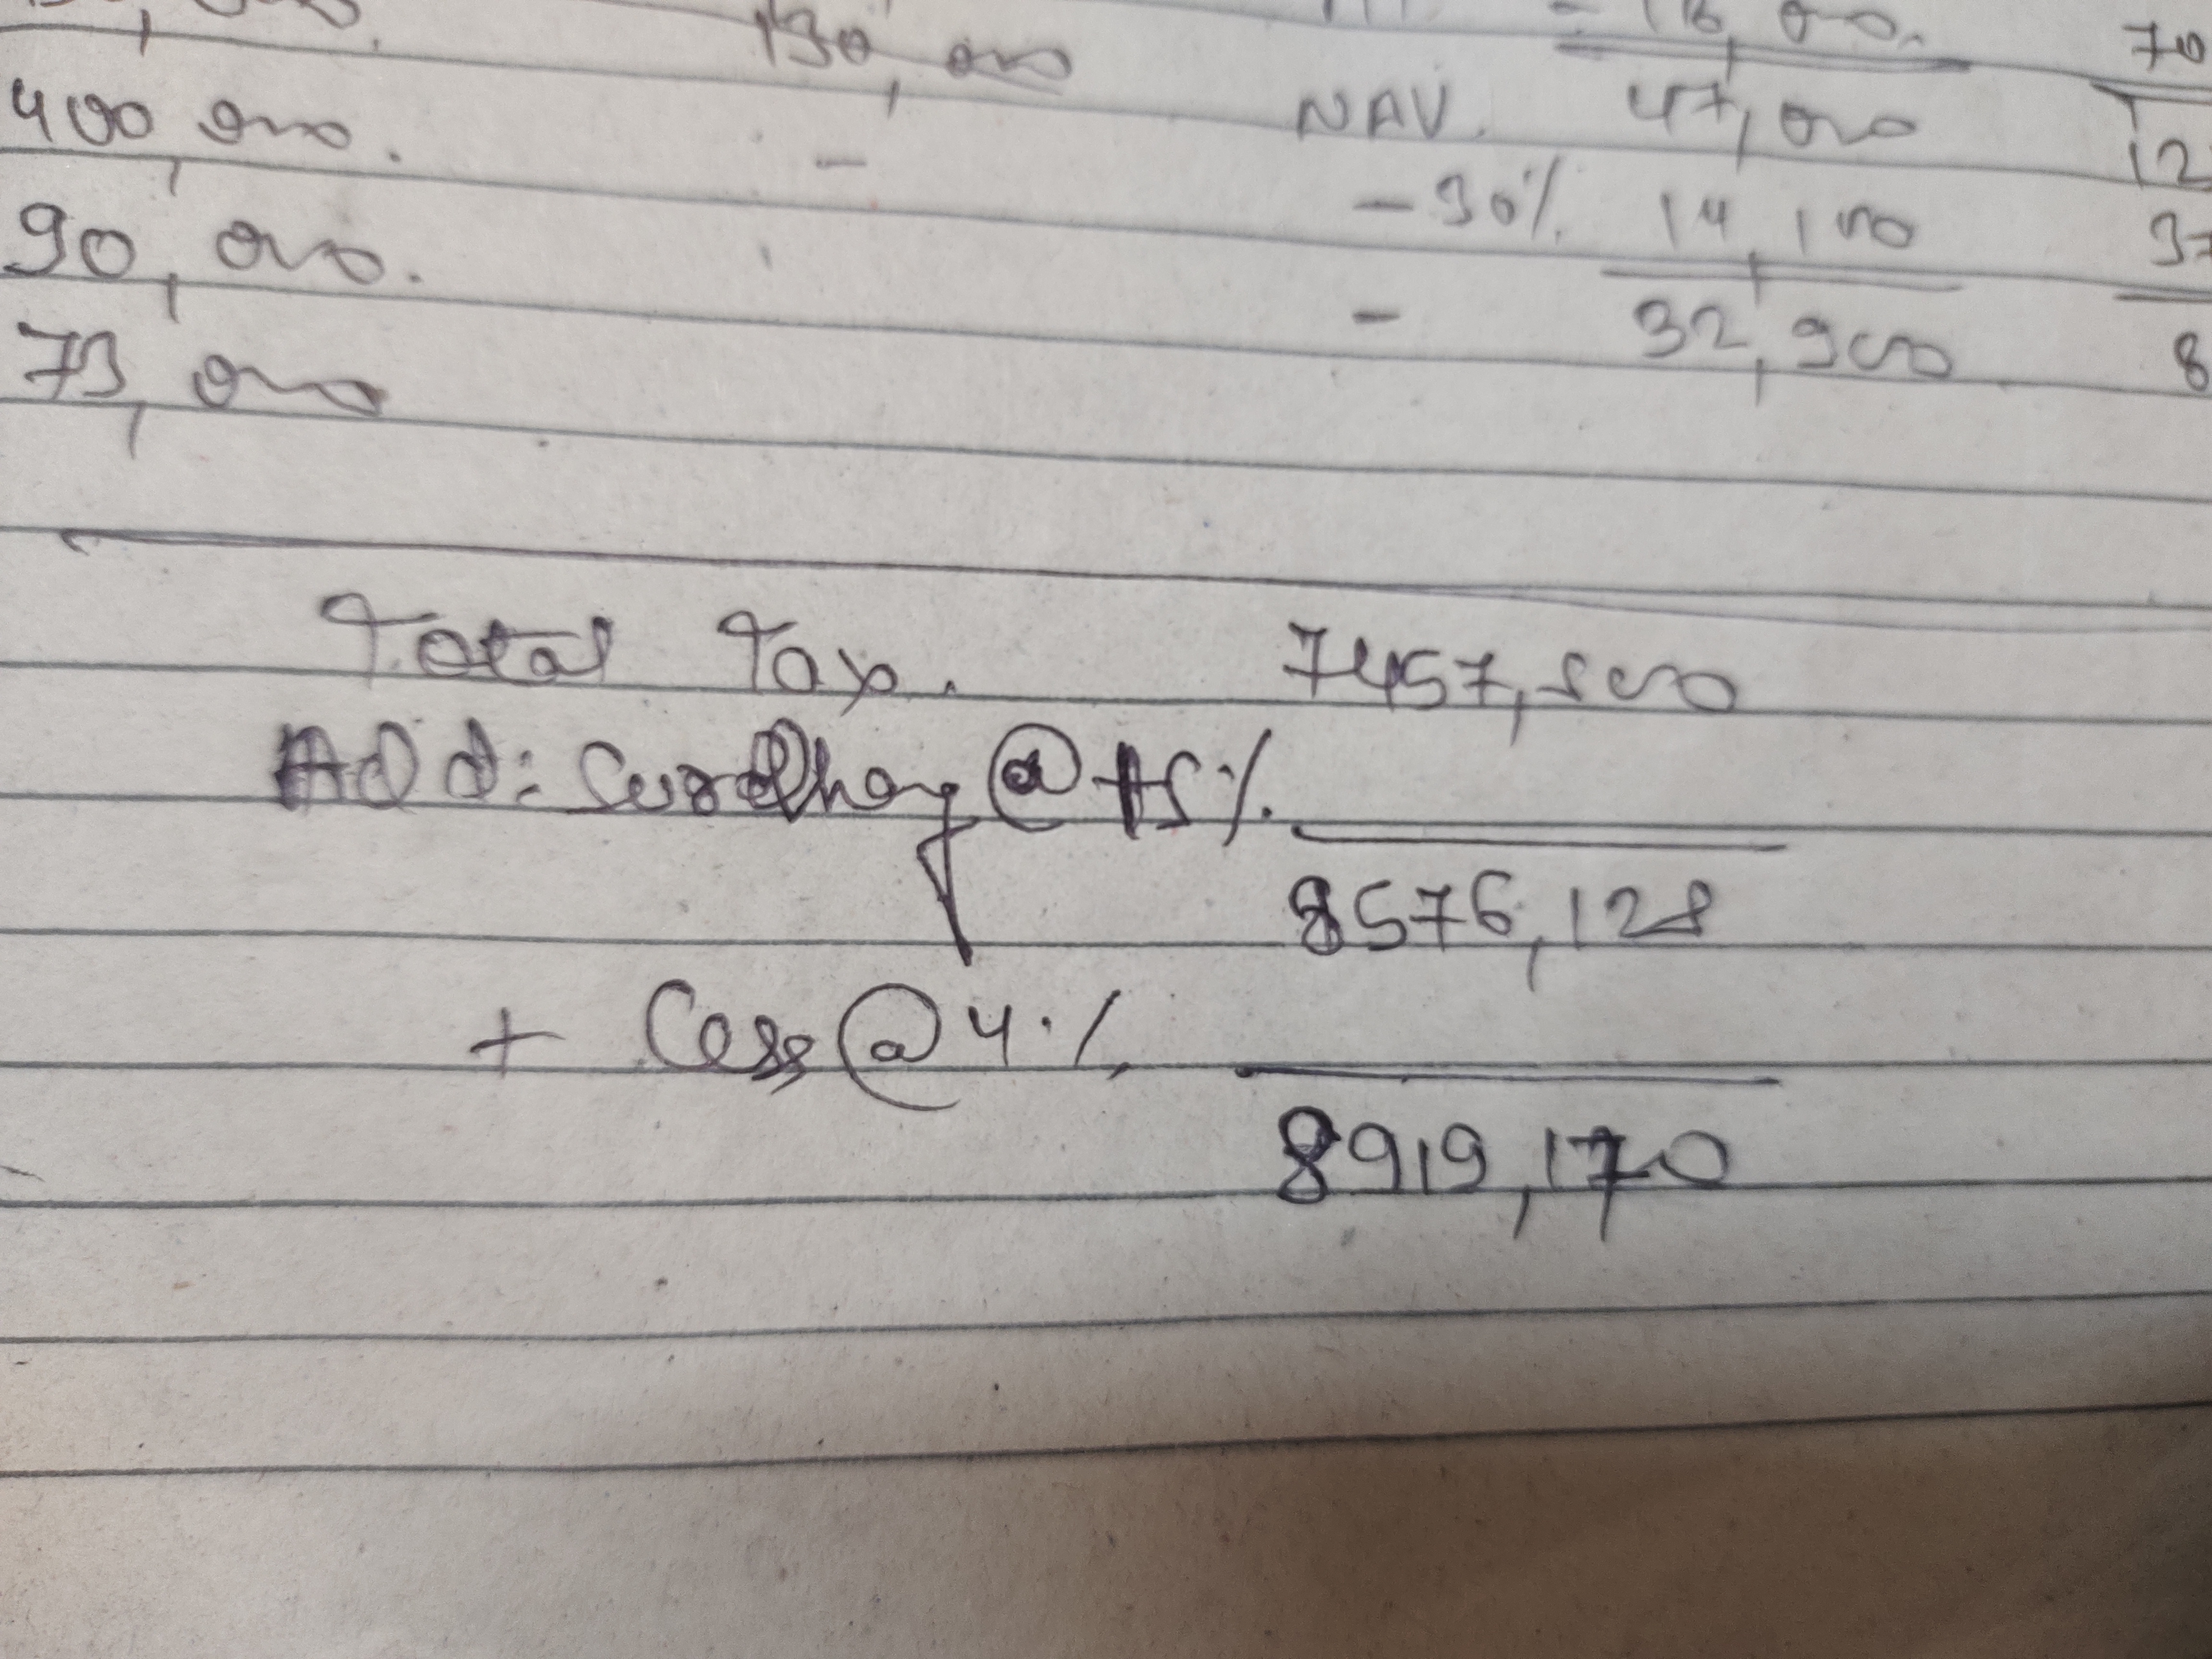 130, 000
- 16, 000.
70
400,000.
-
NAV. 47,000
12
90,000.
- 30% 14,100
37
73,000
- 32,900
8
Total Tax. 7457,500
Add: Surcharge @ 15%
8576,128
+ Cess @ 4%
8919,170